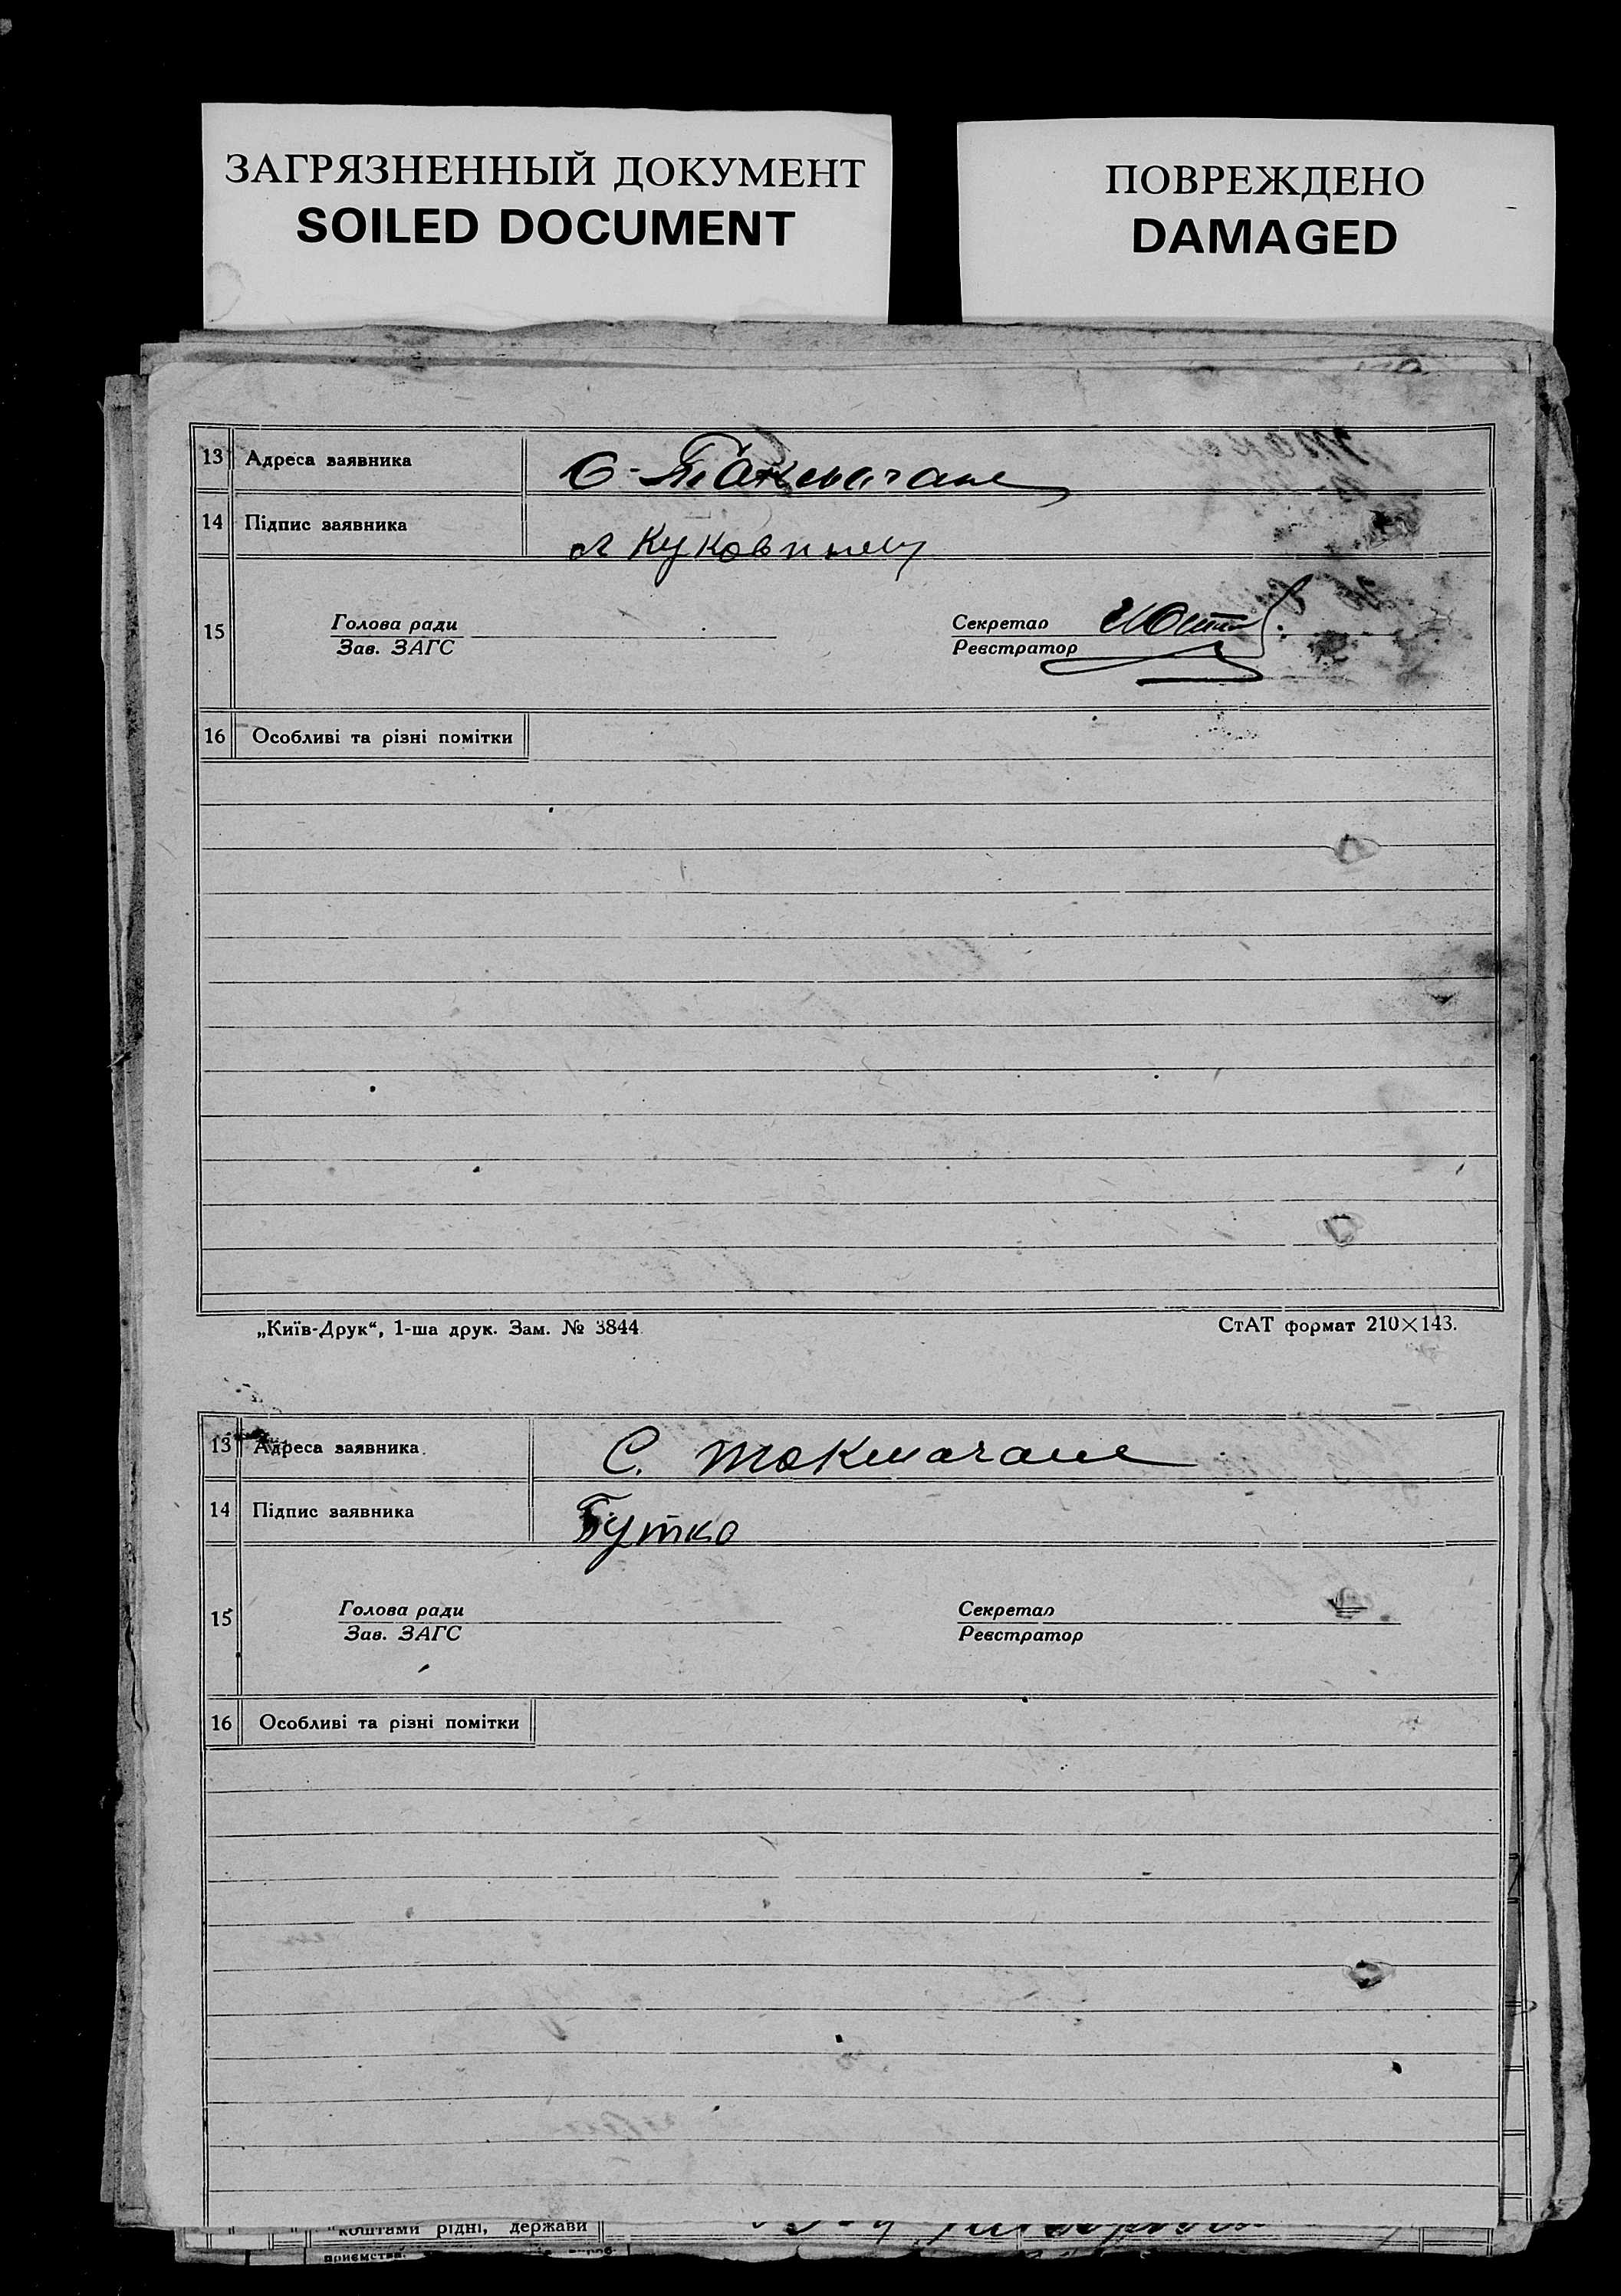 ЗАГРЯЗНЕННЫЙ ДОКУМЕНТ
SOILED DOCUMENT
ПОВРЕЖДЕНО
DAMAGED
13 Адреса заявника С.
14 Підпис заявника
15 Голова ради Секретар
Зав. ЗАГС Реєстратор
16 Особливі та різні помітки
„Київ-Друк“, 1-ша друк. Зам. № 3844 СтАТ формат 210×143.
13 Адреса заявника С. Токмачане
14 Підпис заявника Бутко
15 Голова ради Секретар
Зав. ЗАГС Реєстратор
16 Особливі та різні помітки
коштами рідні, держави